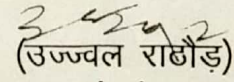 (उज्ज्वल राठौड़)